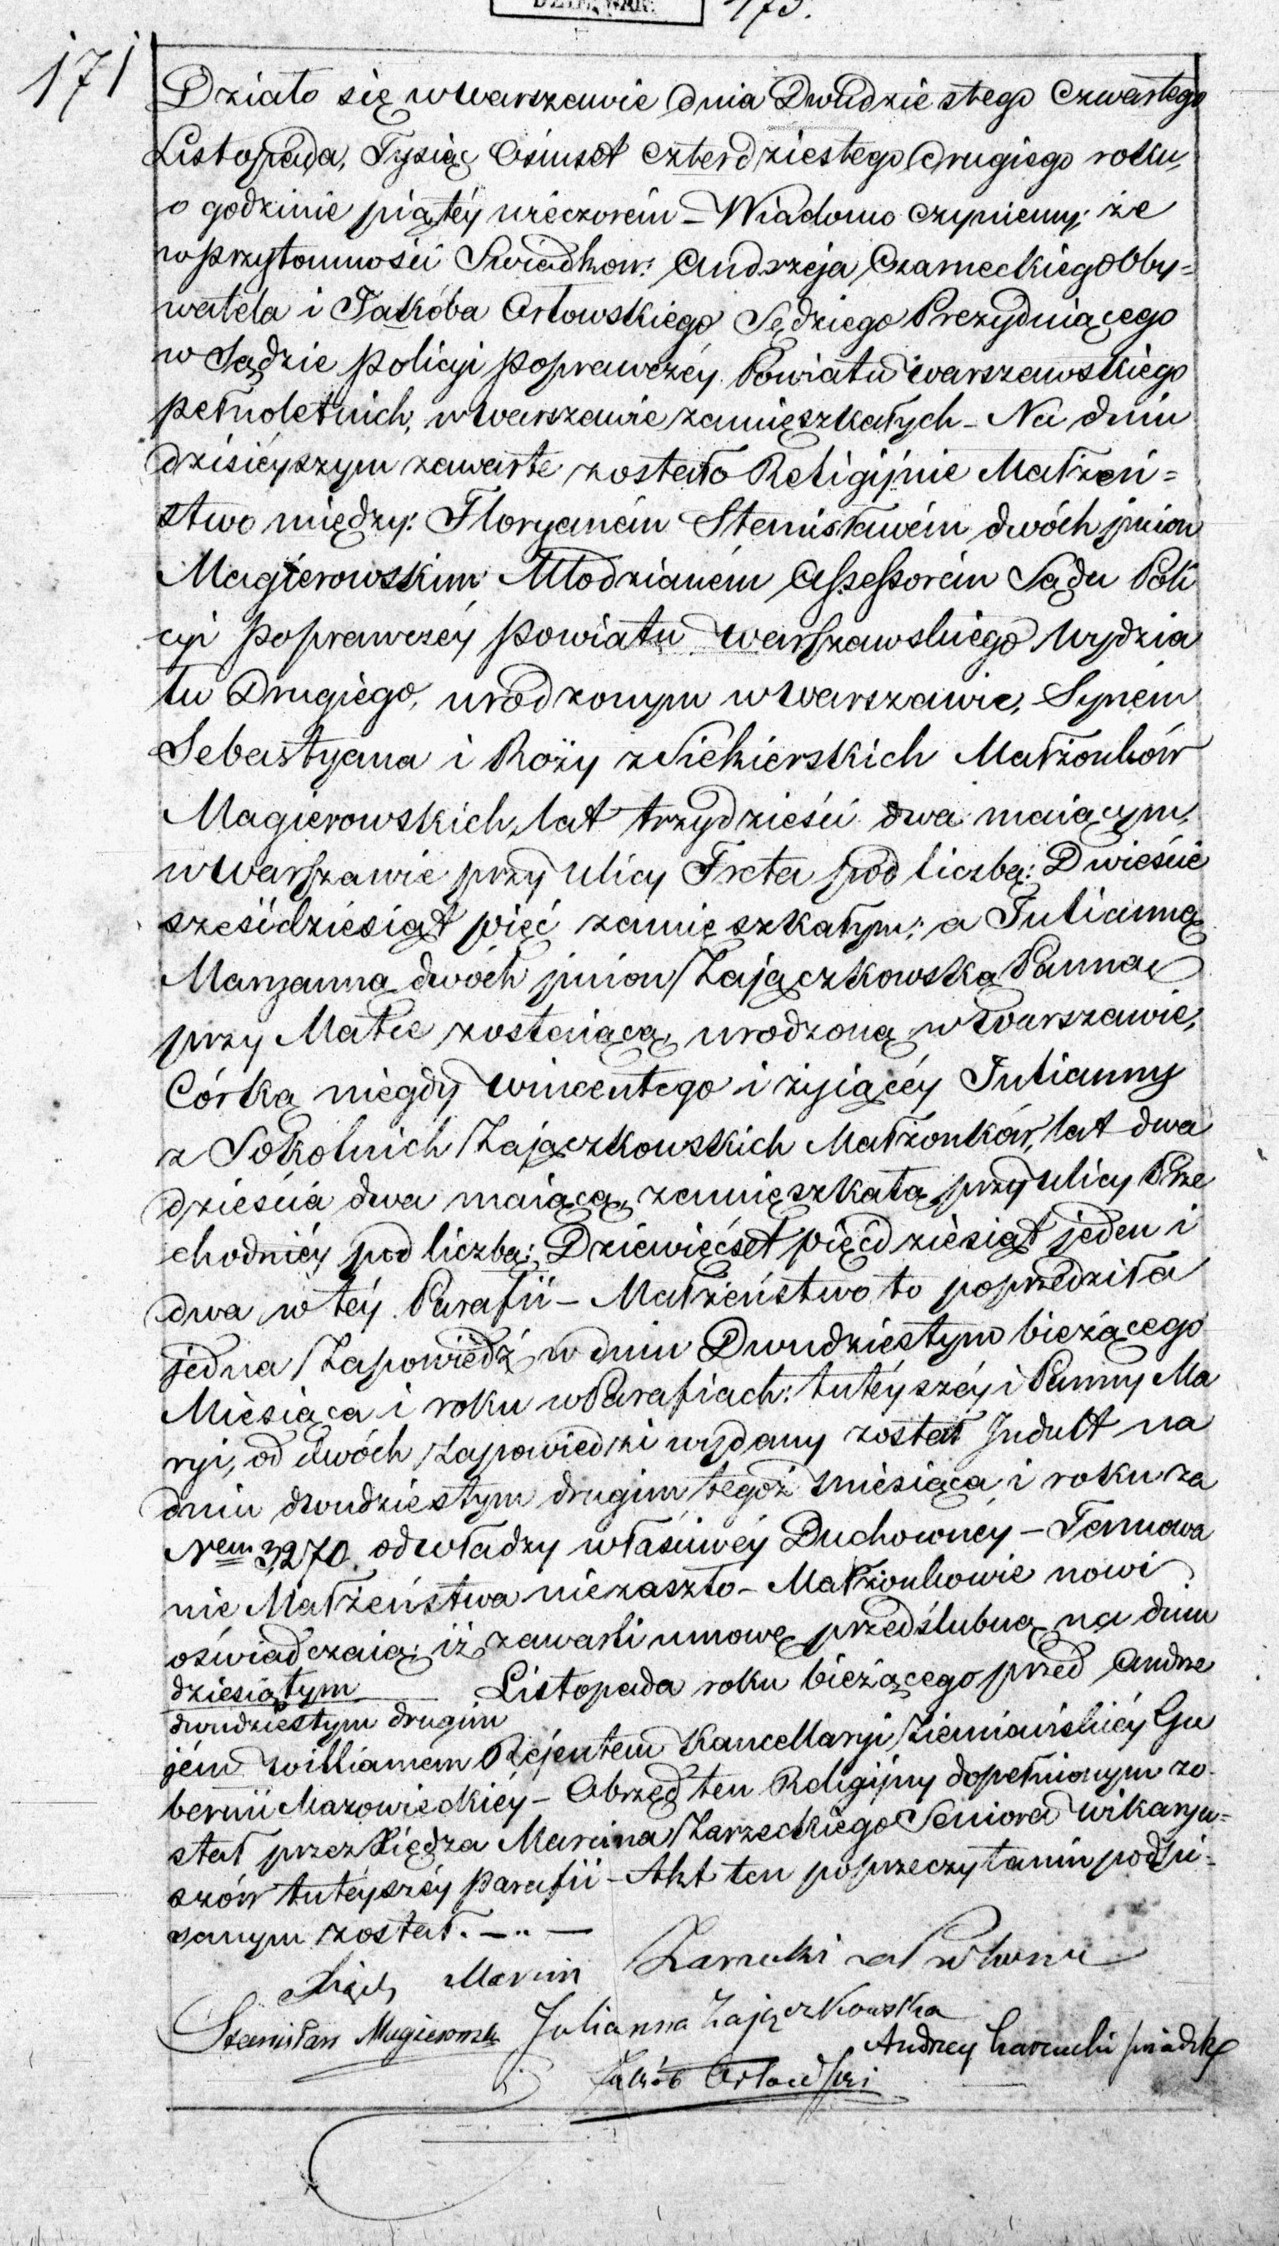 173.
171
Działo się w Warszawie dnia Dwudziestego Czwartego
Listopada, Tysiąc Ośmset czterdziestego drugiego roku,
o godzinie piątéy wieczorem – Wiadomo czyniemy; że
w przytomności Swiadków: Andrzeja Czarneckiego Oby=
watela i Jakóba Orłowskiego Sędziego Prezyduiącego
w Sądzie Policyi Poprawczéy Powiatu Warszawskiego
pełnoletnich, w Warszawie zamieszkałych – Na dniu
dzisieyszym zawarte zostało Religijnie Małżeń=
stwo między: Floryanem Stanisławem dwóch imion
Magierowskim Młodzianem Assessorem Sądu Poli
cyi Poprawczéy Powiatu Warszawskiego Wydzia
łu Drugiego, urodzonym w Warszawie, Synem
Sebastyana i Róży z Siekierskich Małżonków
Magierowskich, lat trzydzieści dwa maiącym,
w Warszawie przy ulicy Freta pod liczbą: Dwieście
sześćdziesiąt pięć zamieszkałym; a Julianną
Maryanną dwóch imion Zajączkowską Panną
przy Matce zostaiącą, urodzoną w Warszawie,
Córką niegdy Wincentego i żyiącéy Julianny
z Sokolnich Zajączkowskich Małżonków, lat dwa
dzieścia dwa maiącą, zamieszkałą przy ulicy Prze
chodniéy pod liczbą: Dziewięćset pięćdziesiąt jeden i
dwa w téy Parafii – Małżeństwo to poprzedziła
jedna Zapowiedź w dniu Dwudziestym bieżącego
Miesiąca i roku w Parafiach: tutéyszéy i Panny Ma
ryi, od dwóch Zapowiedzi wydany został Indult na
dniu dwudziestym drugim tegoż miesiąca i roku za
Nrem 3,270. od władzy właściwéy Duchownéy – Tamowa
nie Małżeństwa niezaszło – Małżonkowie nowi
oświadczaią; iż zawarli umowę przedślubną na dniu
dziesiątym Listopada roku bieżącego przed Andrze
dwudziestym drugim
jem Williamem Rejentem Kancellaryi Ziemiańskiéy Gu
bernii Mazowieckiéy – Obrzęd ten Religijny dopełnionym zo=
stał przez Xiędza Marcina Zarzeckiego Seniora Wikaryu=
szów tutéyszéy Parafii – Akt ten po przeczytaniu podpi=
sanym został. –..–
Xiądz Marcin Zarzecki
Stanisław Magierowski Julianna Zajączkowska
Andrzey Czarnecki świadk
Jakób Orłowski